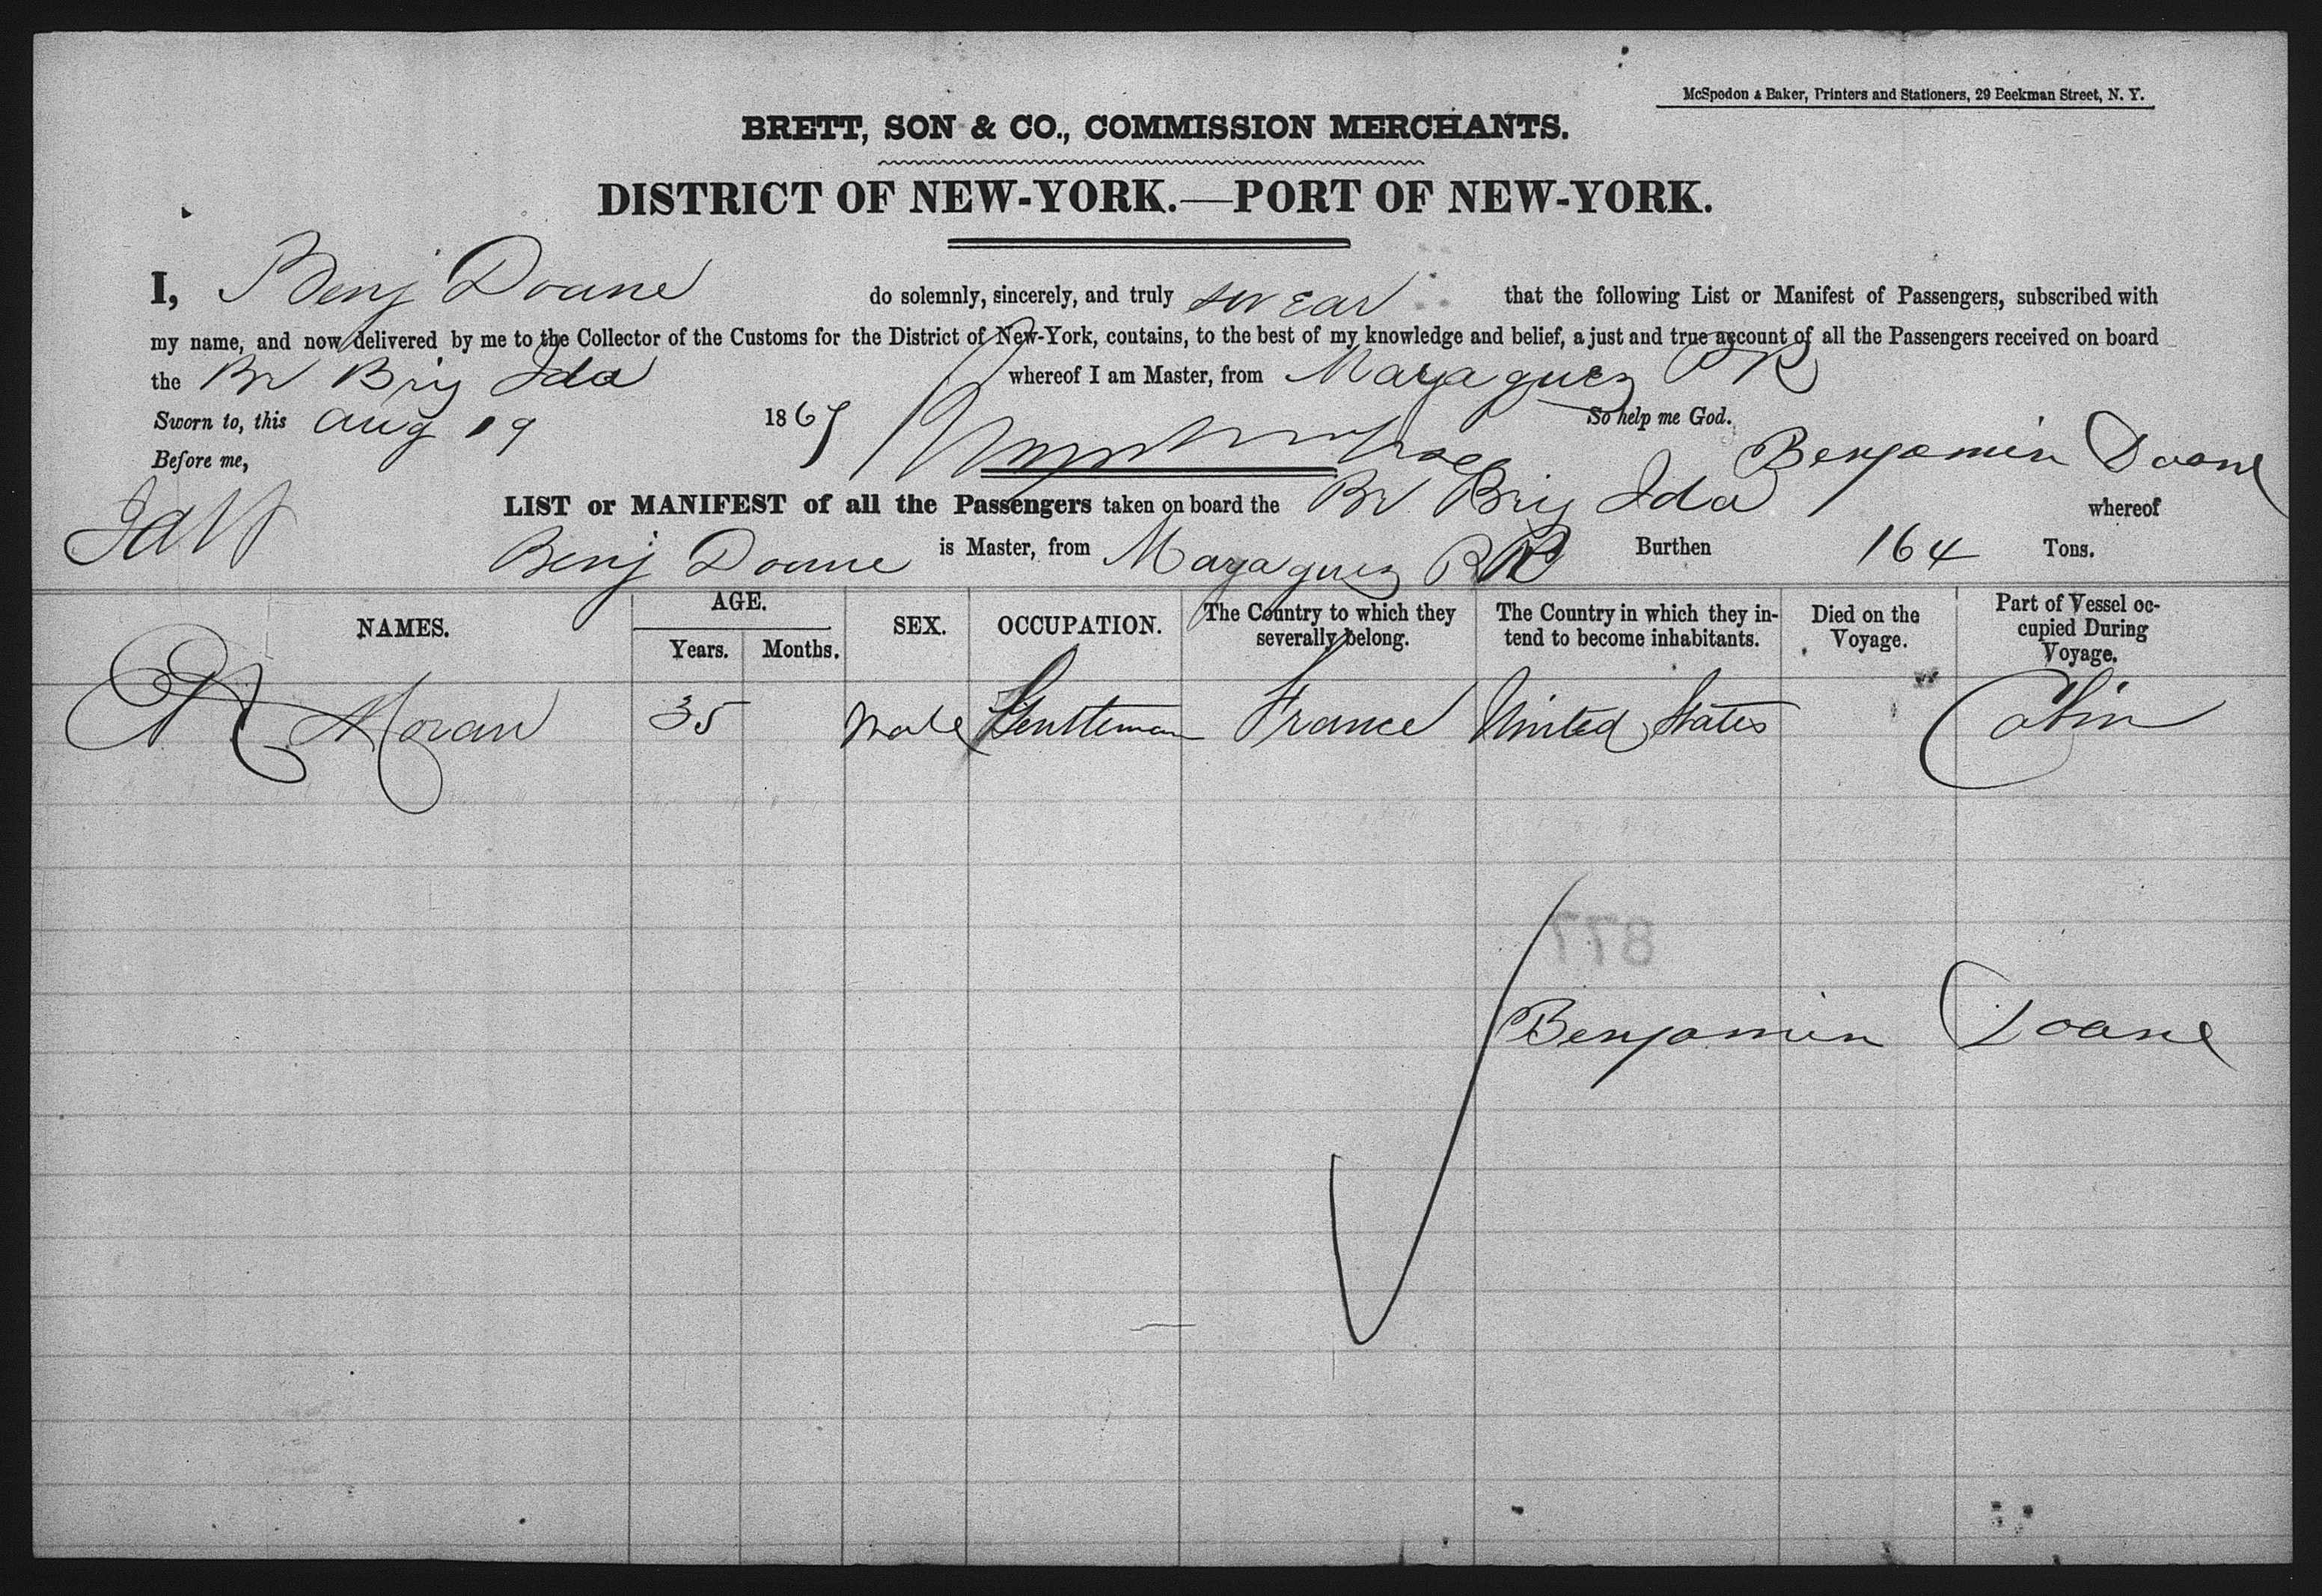 McSpedon & Baker, Printers and Stationers, 29 Beekman Street, N. Y.
BRETT, SON & CO., COMMISSION MERCHANTS.
DISTRICT OF NEW-YORK.—PORT OF NEW-YORK.
I, Benj Doane do solemnly, sincerely, and truly swear that the following List or Manifest of Passengers, subscribed with
my name, and now delivered by me to the Collector of the Customs for the District of New-York, contains, to the best of my knowledge and belief, a just and true account of all the Passengers received on board
the Br Brig Ida whereof I am Master, from Mayaguez PR
Sworn to, this Aug 19 1867 So help me God.
Before me, Benjamin Doane
LIST or MANIFEST of all the Passengers taken on board the Br Brig Ida whereof
Benj Doane is Master, from Mayaguez PR Burthen 164 Tons.
NAMES. AGE. Years. Months. SEX. OCCUPATION. The Country to which they severally belong. The Country in which they intend to become inhabitants. Died on the Voyage. Part of Vessel occupied During Voyage.
Moran 35 Male Gentleman France United States Cabin
877
Benjamin Doane